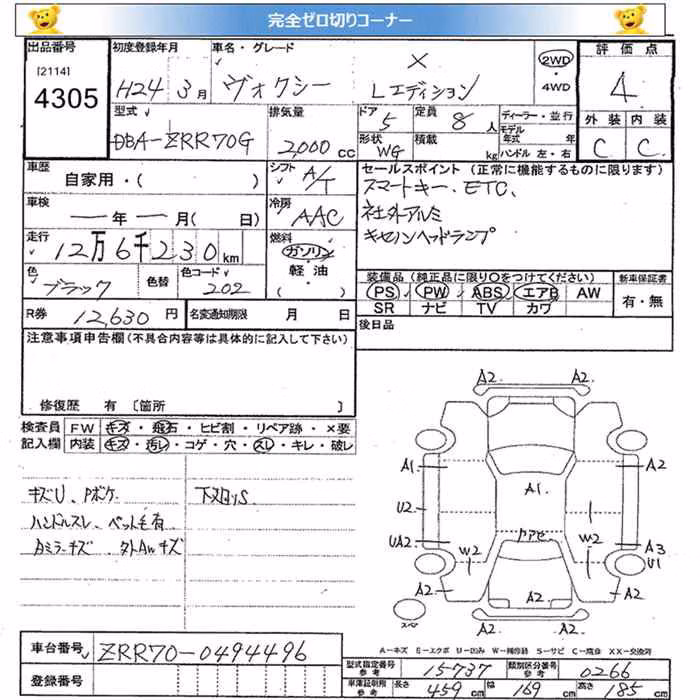 完全ゼロ切りコーナー
出品番号 初度登録年月 車名・グレード 評価点
[2114] 4305
H24 3月 ヴォクシー X Lエディション 2WD・4WD 4
型式 排気量 ドア 定員 ディーラー・並行 外装 内装
DBA-ZRR70G 2,000cc 5 8人 モデル年式 年 C C
形状 WG 積載 kg ハンドル 左・右
車歴 シフト セールスポイント (正常に機能するものに限ります)
自家用・( ) A/T スマートキー、ETC、
車検 冷房 社外アルミ
ー年ー月( 日) AAC キセノンヘッドランプ
走行 燃料
12万6千230km ガソリン・軽油・( )
色 色替 色コード 装備品 (純正品に限り○をつけてください) 新車保証書
ブラック 202 PS PW ABS エアB AW 有・無
SR ナビ TV カワ
R券 12,630円 名変通知期限 月 日 後日品
注意事項申告欄 (不具合内容等は具体的に記入して下さい)
修復歴 有 〔箇所 〕
検査員 FW キズ・飛石・ヒビ割・リペア跡・×要
記入欄 内装 キズ・汚レ・コゲ・穴・スレ・キレ・破レ
キズU、Pボケ 下廻りS
ハンドルスレ、ペット毛有
Aミラーキズ、タトAwキズ
A2 A2
A1 A2
A1
U2
UA2 A3
W2 W2 U1
A2 A2 A2
A2 A2
スペア
A-キズ E-エクボ U-凹み W-補修跡 S-サビ C-腐食 XX-交換済
車台番号 ZRR70-0494496
型式指定番号 参考 15737 類別区分番号 参考 0266
登録番号
車庫証明用 参考 長さ 459cm 幅 169cm 高さ 185cm